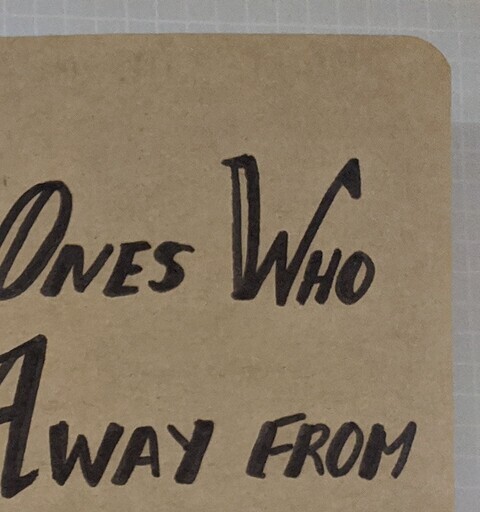 Ones Who
Away from